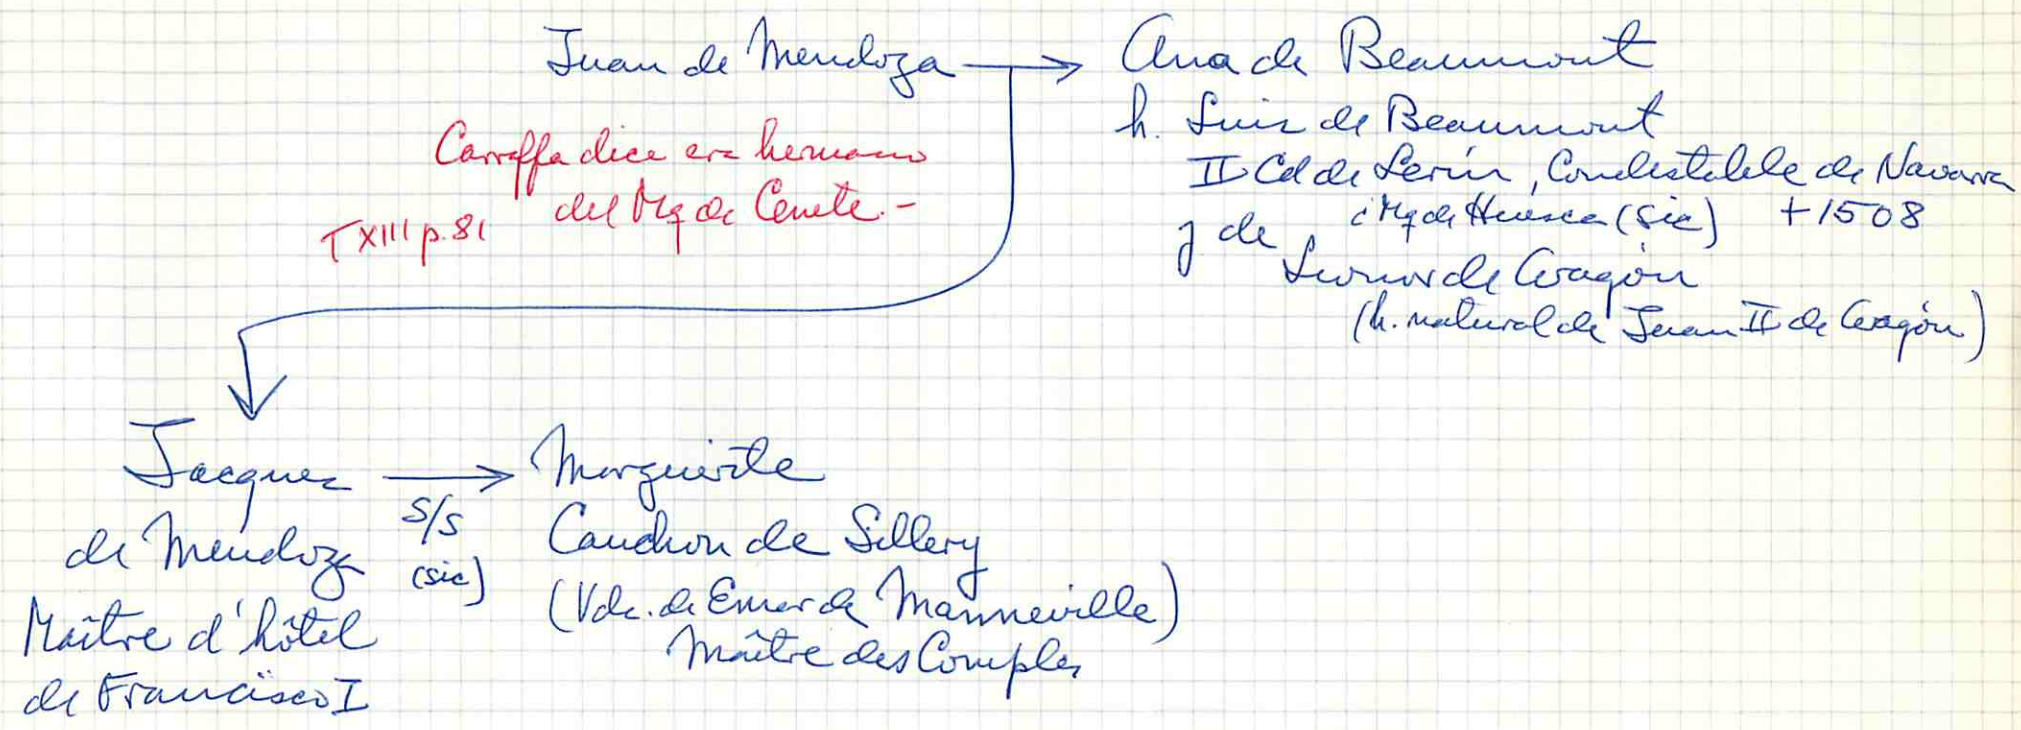 Juan de Mendoza → Ana de Beaumont
h. Luis de Beaumont
II Cd de Lerín, Condestable de Navarra
Mq de Huesca (sic) +1508
y de
Leonor de Aragón
(h. natural de Juan II de Aragón)
Carraffa dice era hermano
del Mq de Cenete.-
T XIII p. 81
Jacques
de Mendoza
Maître d'hôtel
de Francisco I
s/s
(sic)
Marguerite
Cauchon de Sillery
(Vda. de Emer de Manneville)
Maître des Comptes